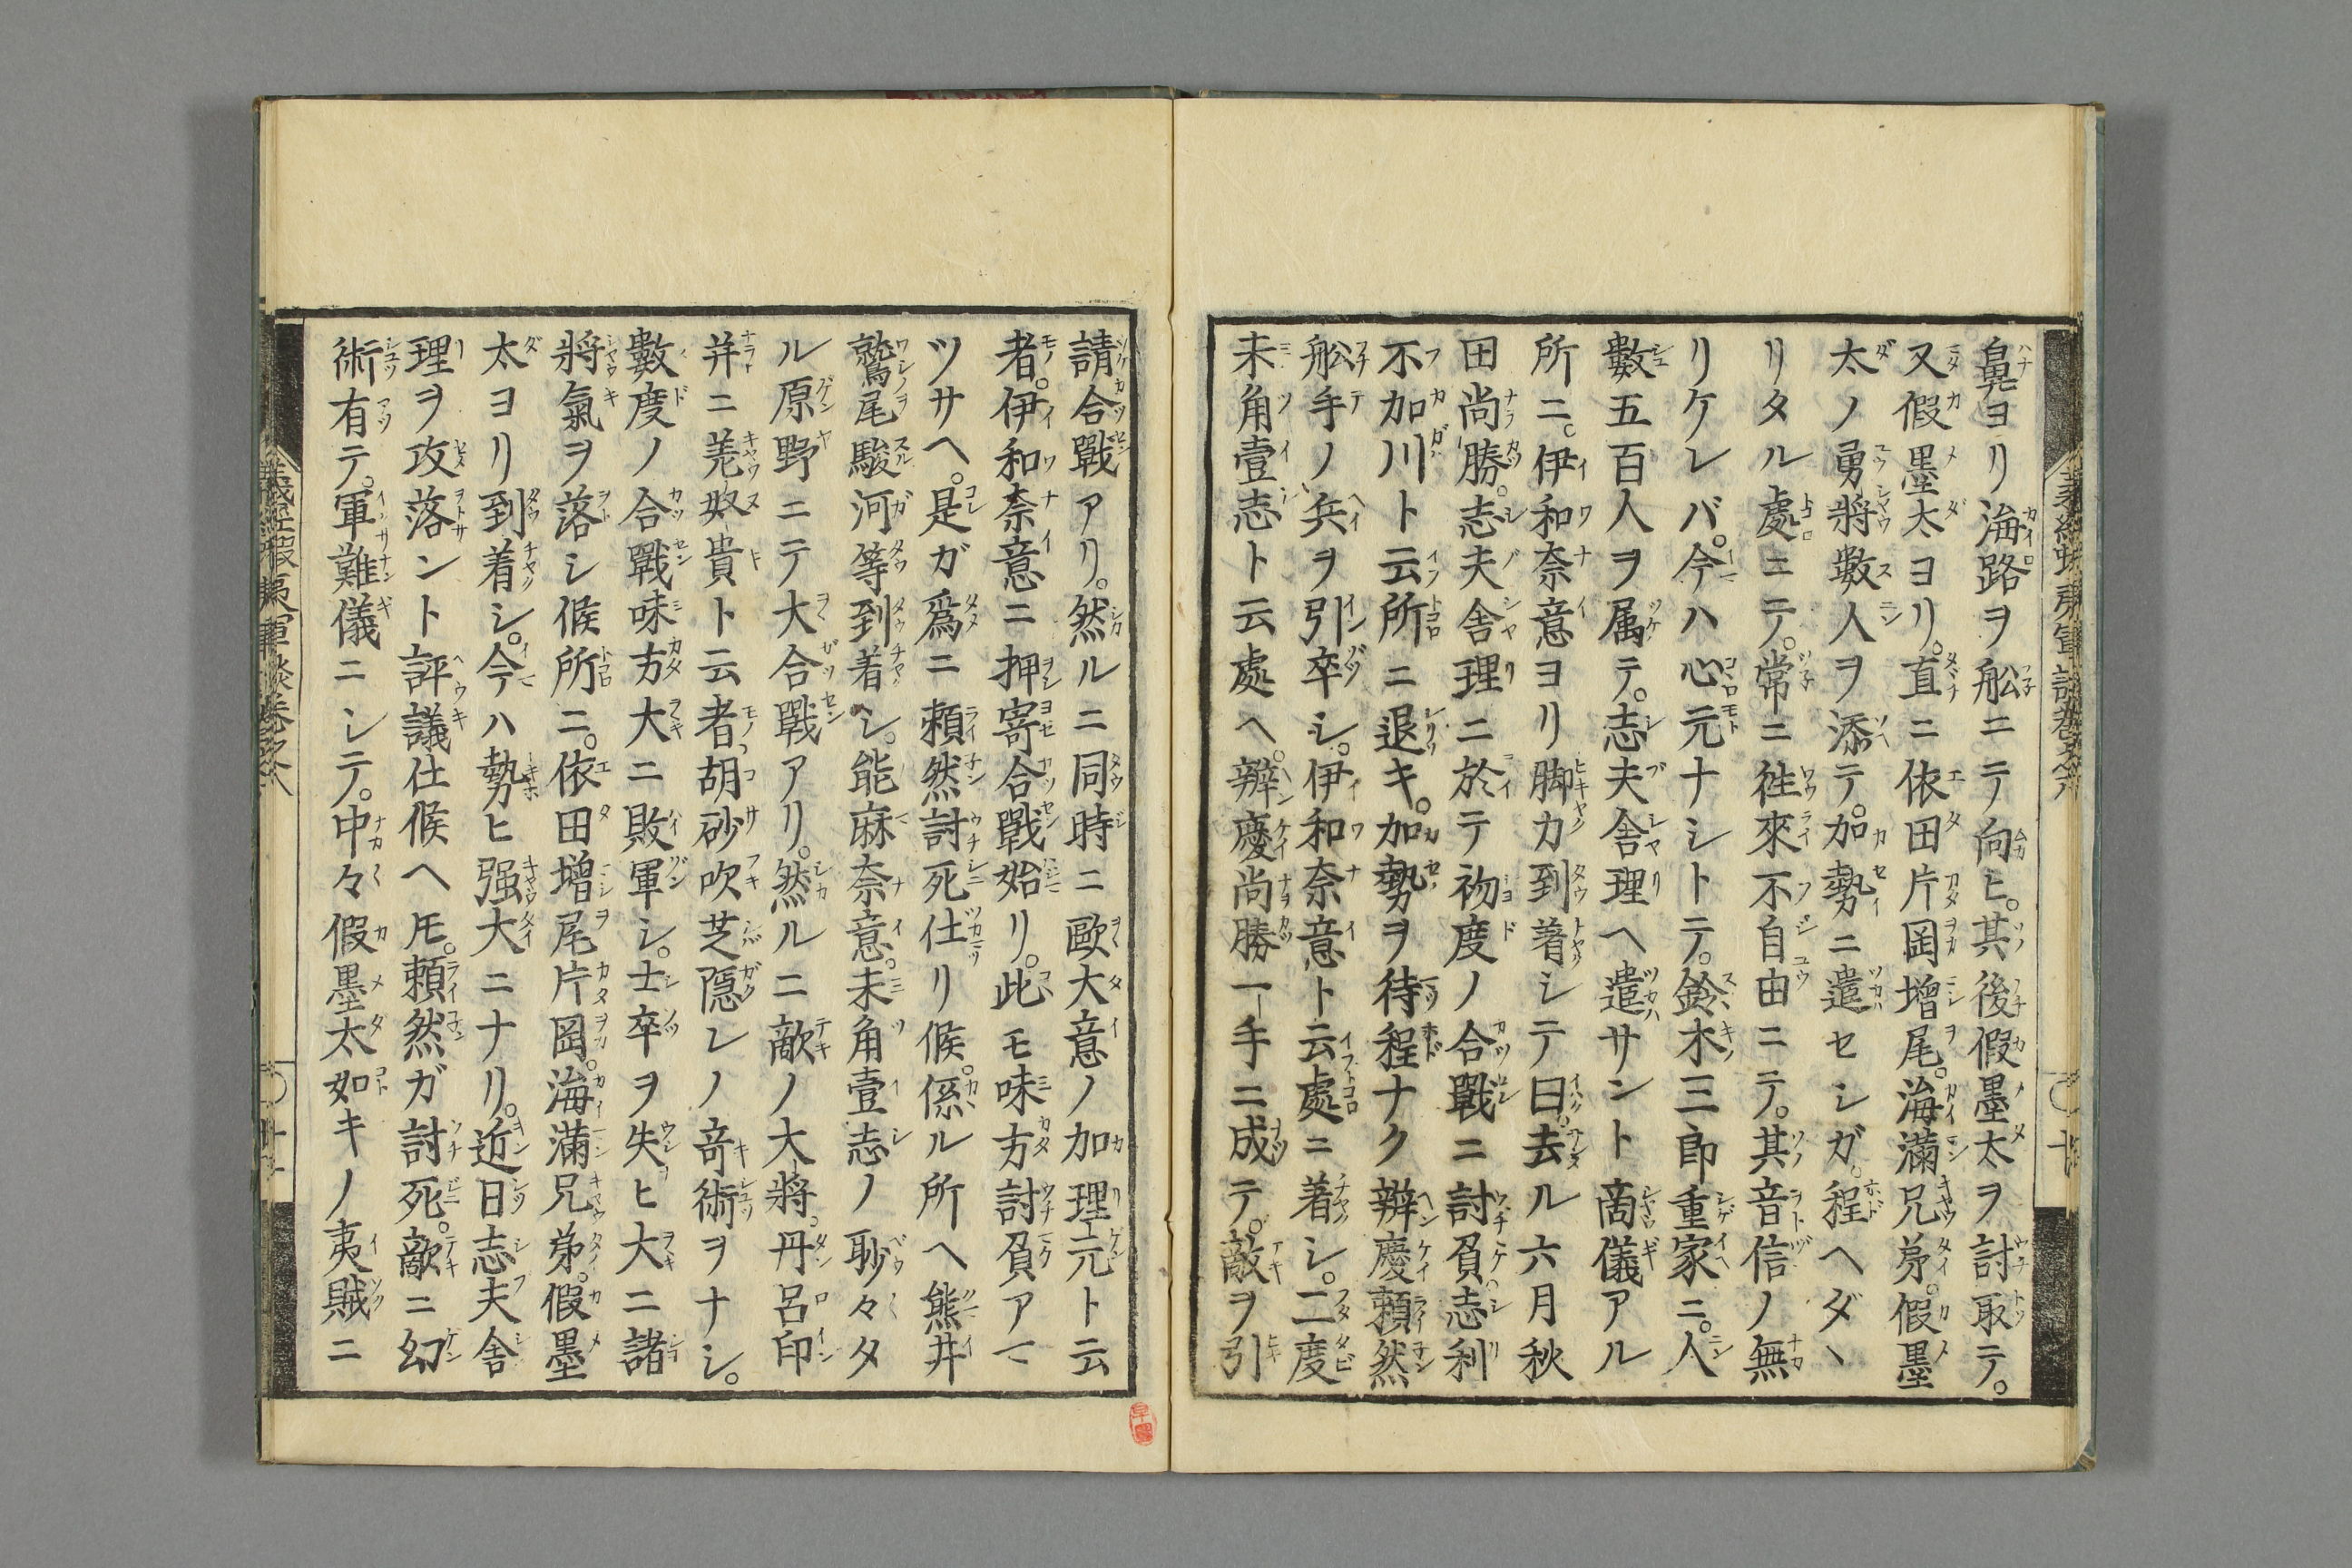 鼻ヨリ海路ヲ舩ニテ向ヒ。其後假墨太ヲ討取テ。
又假墨太ヨリ。直ニ依田片岡増尾。海滿兄弟。假墨
太ノ勇將數人ヲ添テ。加勢ニ遣セシガ。程ヘダヽ
リタル處ニテ。常ニ徃來不自由ニテ。其音信ノ無
リケレバ。今ハ心元ナシトテ。鈴木三郎重家ニ。人
數五百人ヲ属テ。志夫舎理ヘ遣サント商儀アル
所ニ。伊和奈意ヨリ脚力到着シテ曰。去ル六月秋
田尚勝。志夫舎理ニ於テ初度ノ合戰ニ討負。志利
不加川ト云所ニ退キ。加勢ヲ待程ナク辨慶頼然
舩手ノ兵ヲ引卒シ。伊和奈意ト云處ニ着シ。二度
未角壹志ト云處ヘ。辨慶尚勝一手ニ成テ。敵ヲ引
請合戰アリ。然ルニ同時ニ歐大意ノ加理元ト云
者。伊和奈意ニ押寄合戰始リ。此モ味方討負アマ
ツサヘ。是ガ爲ニ頼然討死仕リ候。係ル所ヘ熊井
鷲尾駿河等到着シ。能麻奈意。未角壹志ノ眇々タ
ル原野ニテ大合戰アリ。然ルニ敵ノ大將。丹呂印
并ニ羌奴貴ト云者。胡砂吹芝隠レノ竒術ヲナシ。
數度ノ合戰味方大ニ敗軍シ。士卒ヲ失ヒ大ニ諸
將氣ヲ落シ候所ニ。依田増尾片岡。海滿兄弟。假墨
太ヨリ到着シ。今ハ勢ヒ强大ニナリ。近日志夫舎
理ヲ攻落ント評議仕候ヘ𪜈。頼然ガ討死。敵ニ幻
術有テ。軍難儀ニシテ。中々假墨太如キノ夷賊ニ
義經蝦夷軍談卷之六